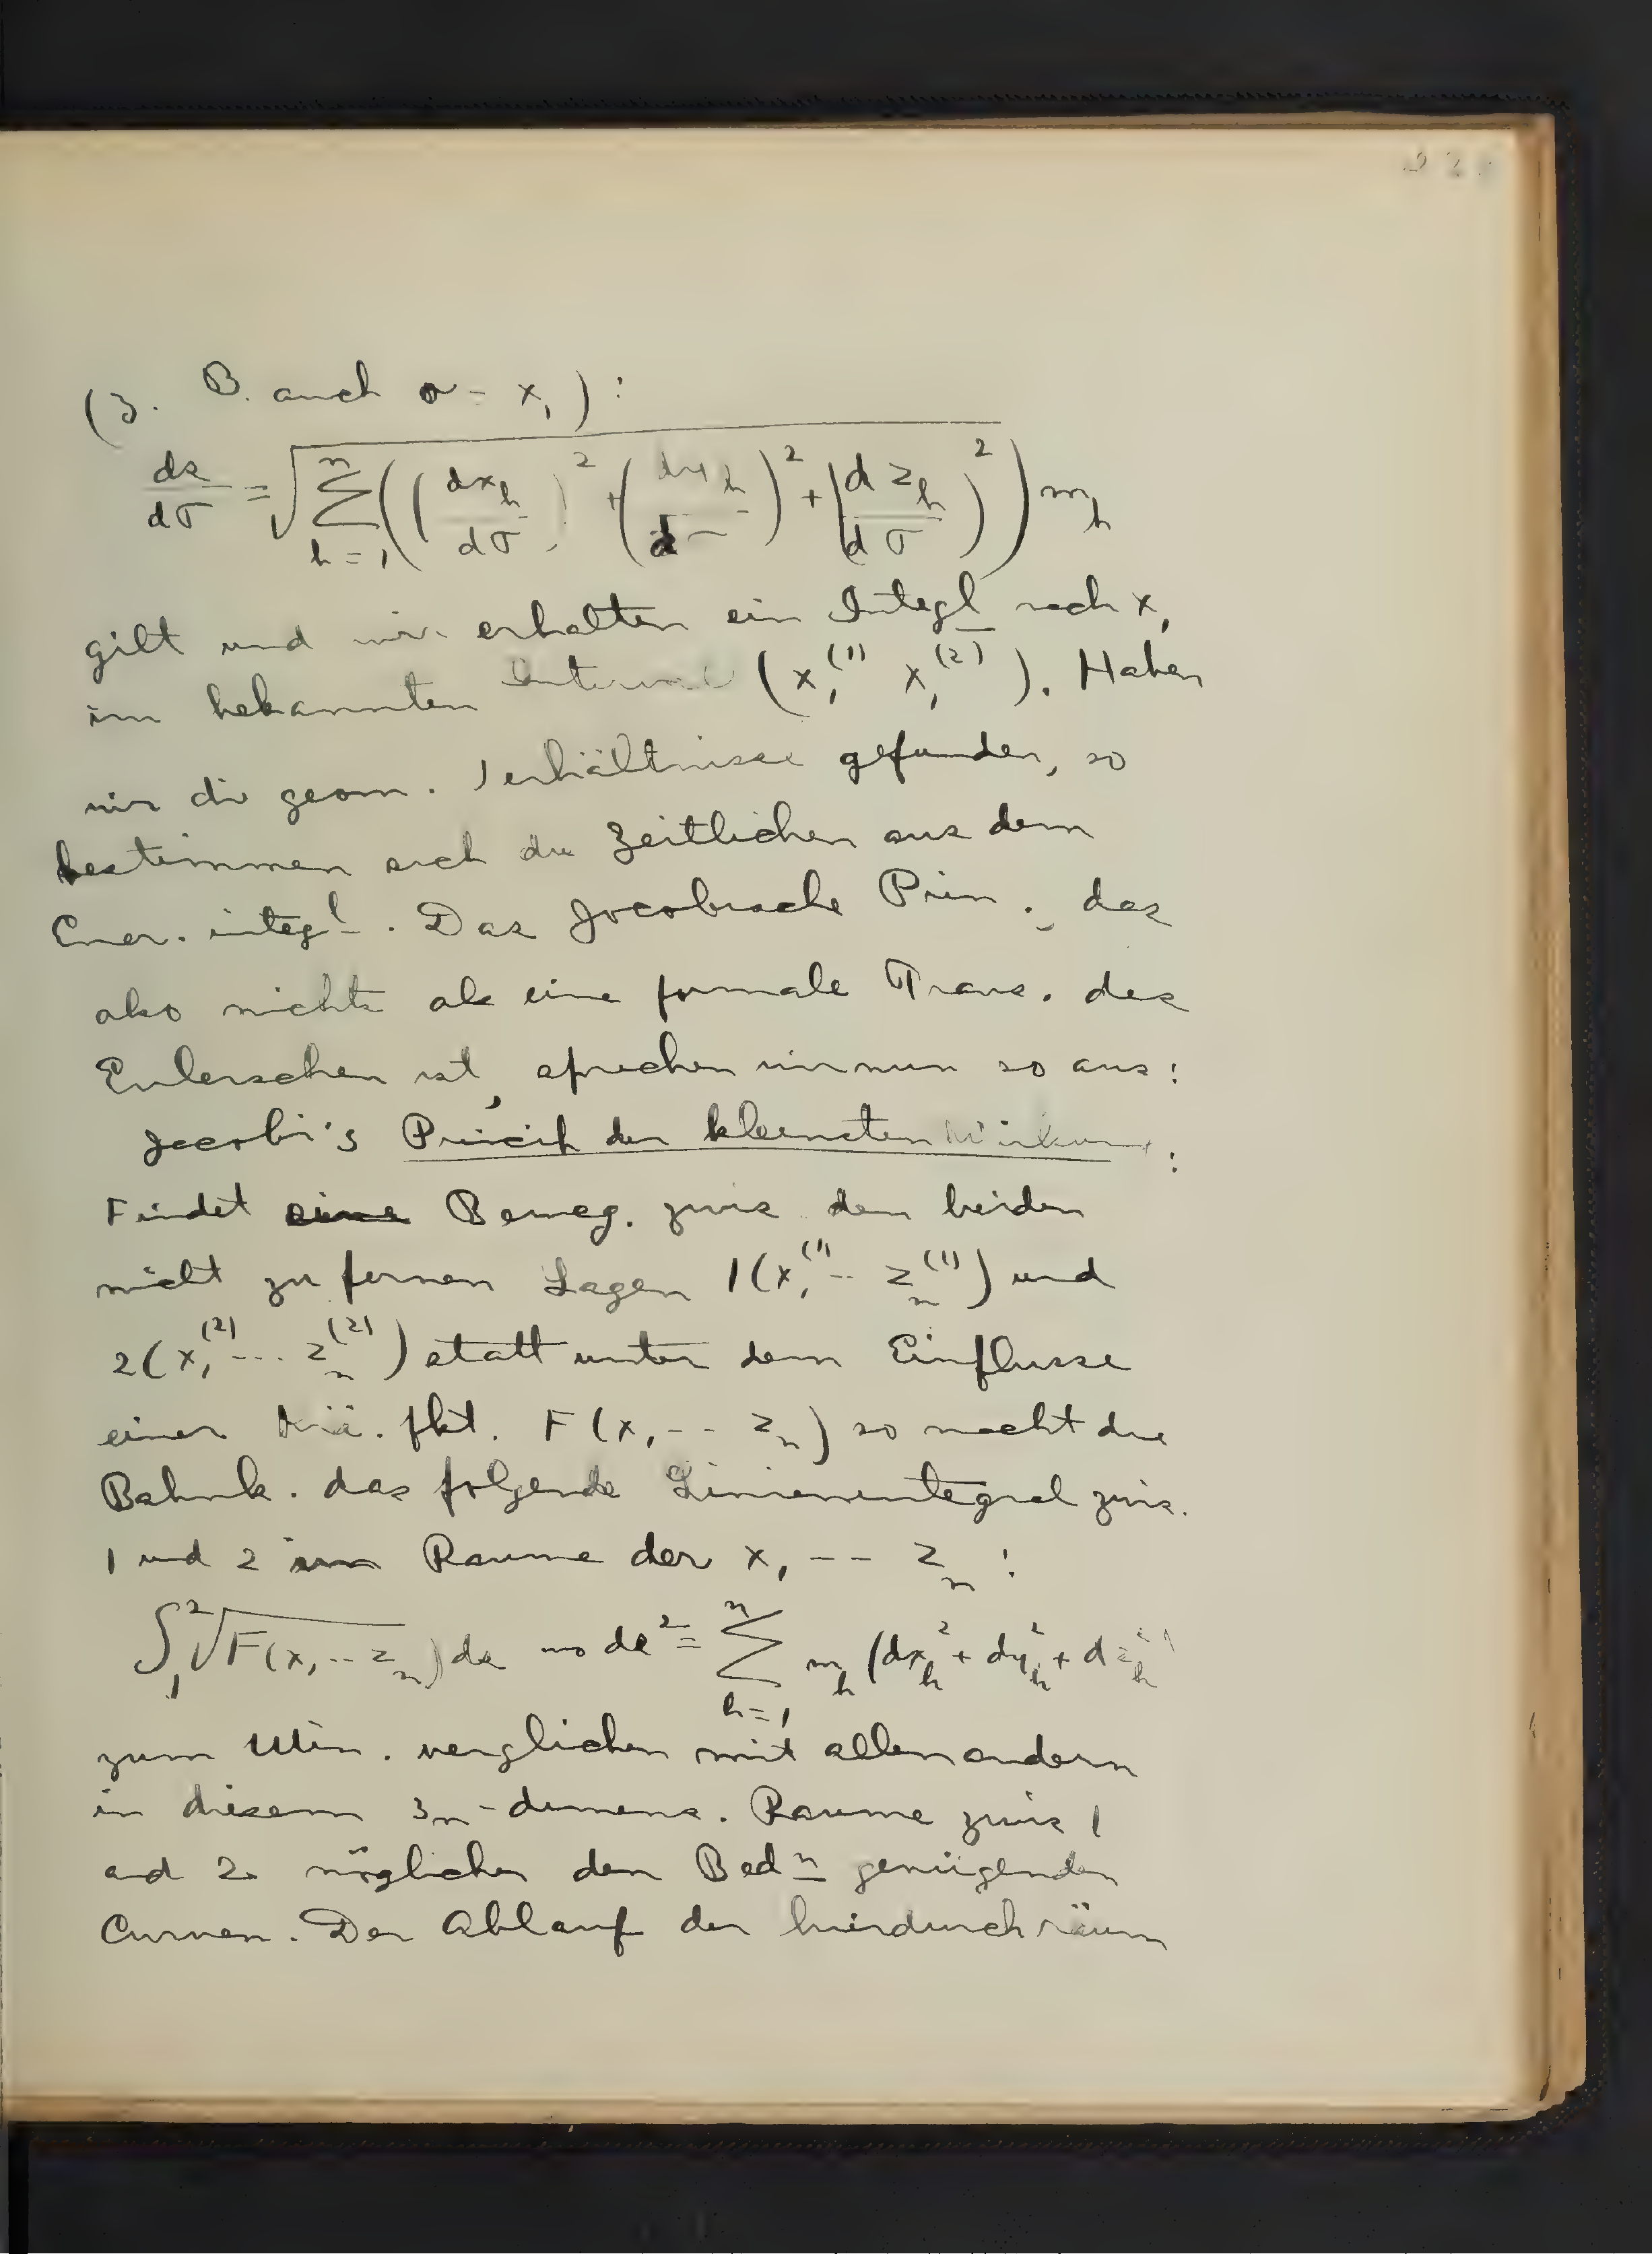 (z. B. auch σ = x₁):
ds/dσ = √(∑_{h=1}^{n} ((dx_h/dσ)² + (dy_h/dσ)² + (dz_h/dσ)²) m_h
gilt und wir erhalten ein Integl nach x₁
im bekannten Intervall (x₁⁽¹⁾ x₁⁽²⁾). Haben
wir die geom. Verhältnisse gefunden, so
bestimmen sich die Zeitlichen aus dem
Ener. integl. Das Jacobische Prin., das
also nichts als eine formale Trans. des
Eulerschen ist, sprechen wir nun so aus:
Jacobi's Princip der kleinsten Wirkung:
Findet eine Beweg. zwis den beiden
nicht zu fernen Lagen 1(x₁⁽¹⁾ -- z_n⁽¹⁾) und
2(x₁⁽²⁾ --- z_n⁽²⁾) statt unter dem Einflusse
einer Krä. fkt. F(x₁ -- z_n) so macht die
Bahnk. das folgende Linienintegral zwis.
1 und 2 im Raume der x₁ -- z_n:
∫₁² √F(x₁ -- z_n) ds wo ds² = ∑_{h=1}^{n} m_h (dx_h² + dy_h² + dz_h²)
zum Min. verglichen mit allen andern
in diesem 3n-dimens. Raume zwis 1
und 2 möglichen den Bedn genügenden
Curven. Der Ablauf der hierdurch räum